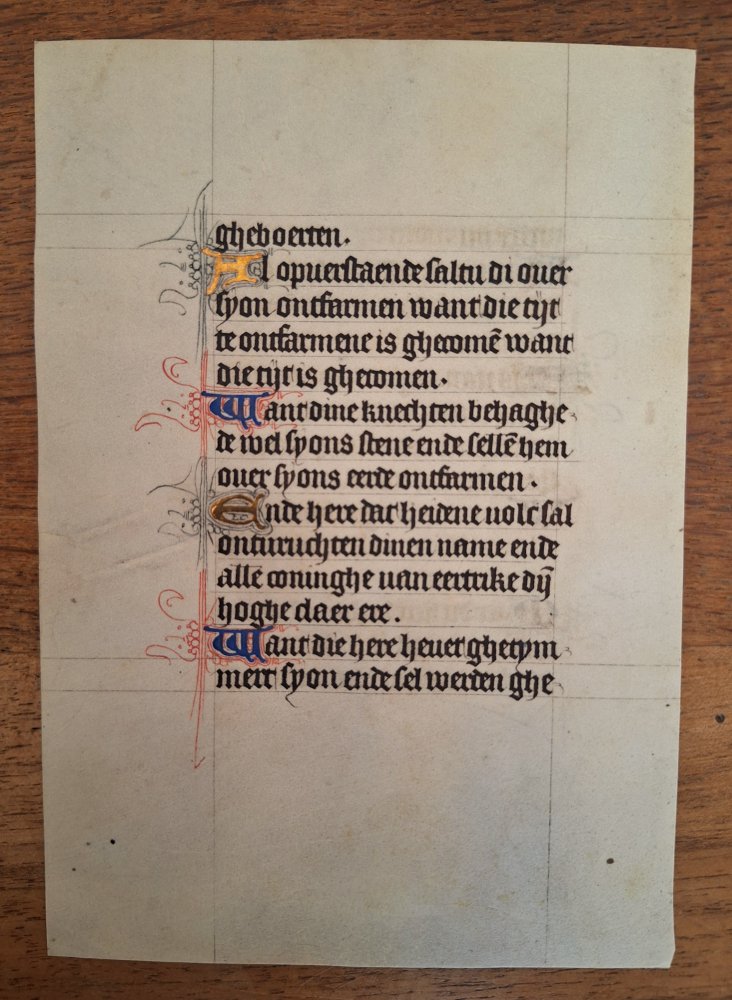 gheboerten.
Al opuerstaende saltu di ouer
syon ontfarmen want die tijt
te ontfarmene is ghecomē want
die tijt is ghecomen.
Want dine knechten behaghe
de wel syons stene ende sellē hem
ouer syons eerde ontfarmen.
Ende here dat heidene uolc sal
onturuchten dinen name ende
alle coninghe uan eertrike dyn̄
hoghe claer ere.
Want die here heuet ghetym
mert syon ende sel werden ghe